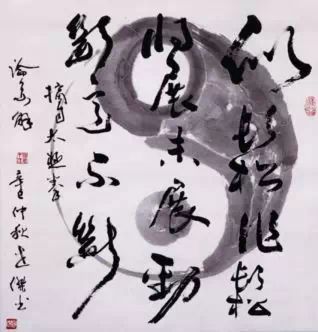 似鬆非鬆
將展未展勁
斷意不斷
摘自太極拳
論要解
仲秋 書